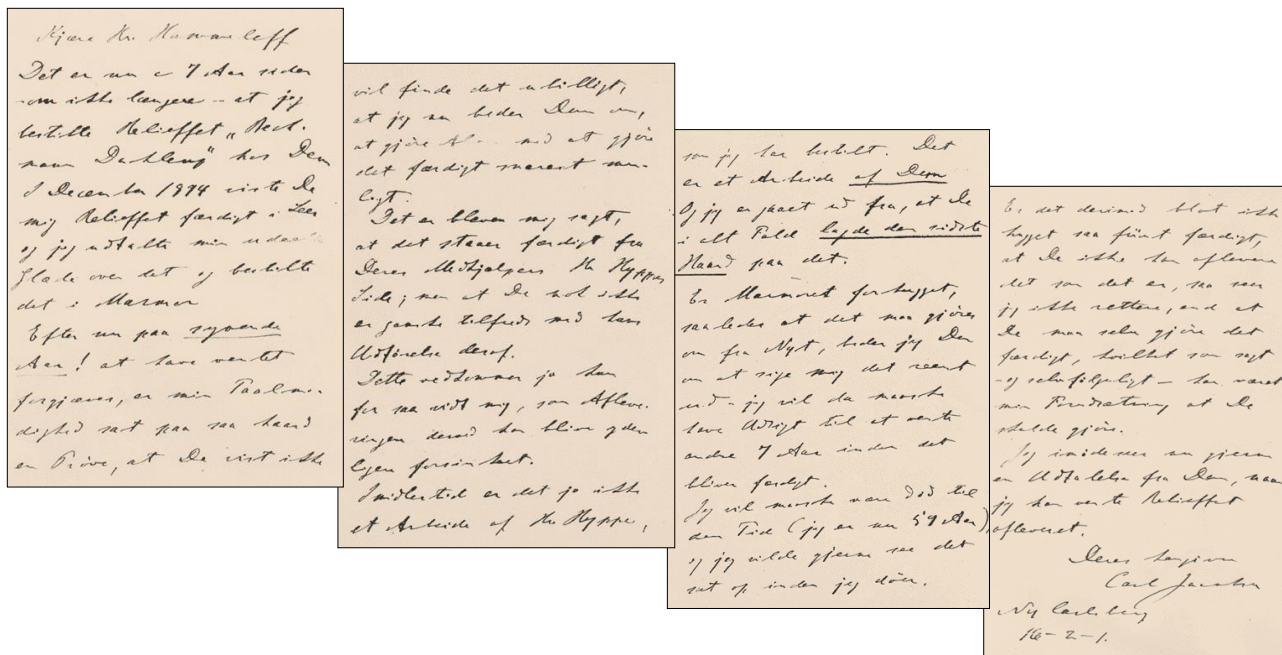 Kjære Hr. Hammeleff
Det er nu c 7 Aar siden
- om ikke længere - at jeg
bestilte Relieffet „
hos Dem
I December 1894 viste De
mig Relieffet færdigt i Leer
og jeg udtalte min
Glæde over det og bestilte
det i Marmor
Efter nu paa syvende
Aar! at have ventet
forgjæves, er min Taalmo-
dighed sat paa saa haard
en Pröve, at De vist ikke
vil finde det ubilligt,
at jeg nu beder Dem om,
at gjöre Al- med at gjöre
det færdigt snarest mu-
ligt.
Det er bleven mig sagt,
at det staaer færdigt fra
Deres Medhjælpers Hr Hyppes
Side; men at De nok ikke
er ganske tilfreds med hans
Udförelse deraf.
Dette vedkommer jo kun
for saa vidt mig, som Afleve-
ringen derved kan blive yder-
ligen forsinket.
Imidlertid er det jo ikke
et Arbeide af Hr Hyppe,
som jeg har bestilt. Det
er et Arbeide af Dem
Og jeg er gaaet ud fra, at De
i alt Fald lagde den sidste
Haand paa det.
Er Marmoret forhugget,
saaledes at det maa gjöres
om fra Nyt, beder jeg Dem
om at sige mig det reent
ud - jeg vil da maaske
have Udsigt til at vente
andre 7 Aar inden det
bliver færdigt.
Jeg vil maaske være död til
den Tid (jeg er nu 59 Aar)
og jeg vilde gjerne see det
sat op inden jeg döer.
Er det derimod blot ikke
hugget saa fiint færdigt,
at De ikke kan aflevere
det som det er, saa seer
jeg ikke rettere, end at
De maa selv gjöre det
færdigt, hvilket som sagt
- og selvfölgeligt - har været
min Forudsætning at De
skulde gjöre.
Jeg imödeseer nu gjerne
en Udtalelse fra Dem, naar
jeg kan vente Relieffet
afleveret.
Deres hengivne
Carl Jacobsen
Ny Carlsberg
16 - 2 - 1.